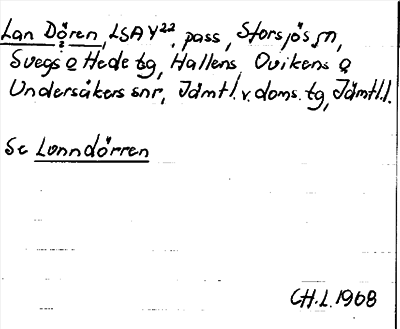 Lan Dören, LSAY²², pass, Storsjös sn,
Svegs o Hede tg, Hallens, Ovikens o
Undersåkers snr, Jämtl. v. doms. tg, Jämtl.l.
Se Lonndörren
CH.L. 1968